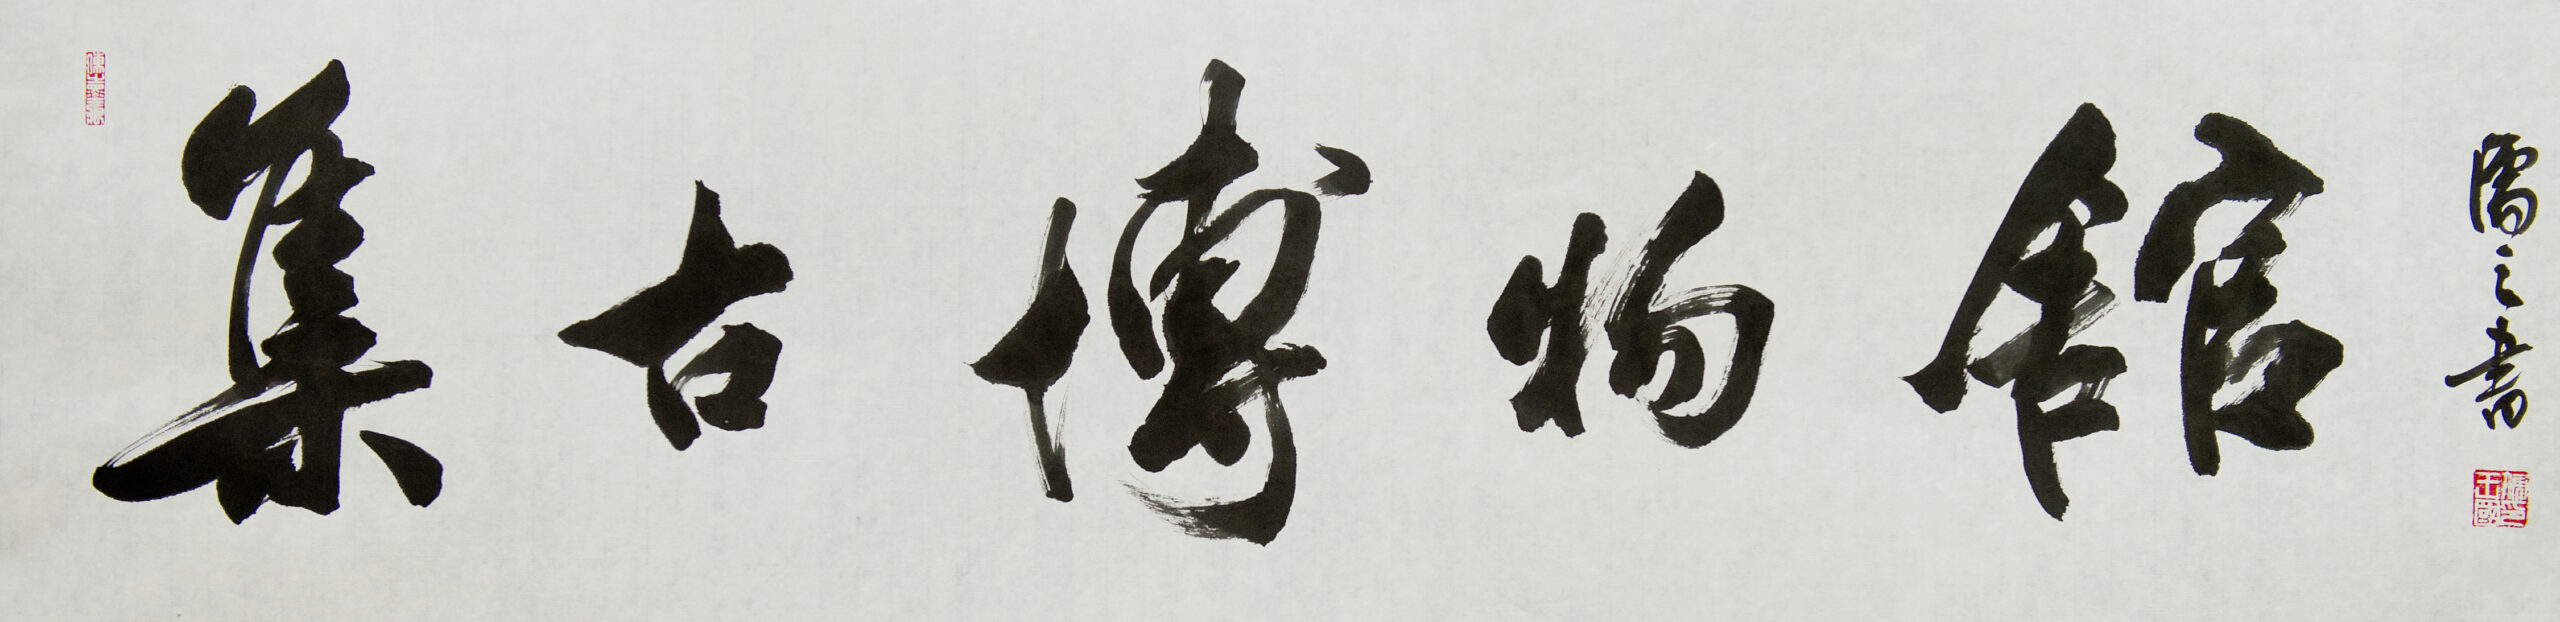 集古博物館
濡之書